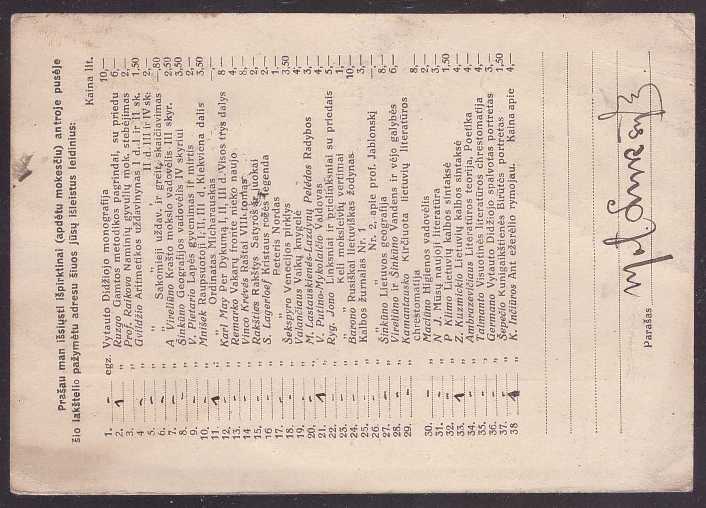 Prašau man išsiųsti išpirktinai (apdėtu mokesčiu) antroje pusėje
šio lakštelio pažymėtu adresu šiuos jūsų išleistus leidinus:
Kaina lit.
1. – egz. Vytauto Didžiojo monografija 10,—
2. 1 „ Ruzgo Gamtos metodikos pagrindai, su priedu 6,—
3. – „ Prof. Raikovo Naminių gyvulių mok. stebėjimas 2,—
4 – „ Gvildžio Aritmetikos uždavinynas I d. I ir II sk. 1,50
5. – „ „ „ „ II d. III ir IV sk. 2,—
6. – „ Sakomieji uždav. ir greit. skaičiavimas —,80
7. – „ A Vireliūno Krašto mokslo vadovėlis III skyr. 2,50
8. – „ Šinkūno Geografijos vadovėlis IV skyriui 3,50
9. – „ V. Pietario Lapės gyvenimas ir mirtis 2,—
10. – „ Mnišek Raupsuotoji I, II, III d. Kiekviena dalis 3,50
11. 1 „ „ Ordinatas Michorauskas —,—
12. – „ Karl May Per Dykumą I, II, III d. Visos trys dalys 8 —
13. – „ Remarko Vakarų fronte nieko naujo 4,—
14 – „ Vinco Krėvės Raštai VIII tomas 8,—
15. – „ Rakšties Rakštys Satyros ir juokai 4,—
16 – „ S. Lagerlöef Kristaus rožės legenda 2,—
17. – „ „ Peteris Nordas 1,—
18. – „ Sekspyro Venecijos pirklys 3.50
19. – „ Valančiaus Vaikų knygelė 4,—
20. – „ M. Lastauskienės-Lazdynų Pelėdos Radybos 3,—
21. 1 „ V. Putino-Mykolaičio Valdovas 4,—
22. – „ Ryg. Jono Linksniai ir prielinksniai su priedais 5,—
23. – „ „ „ Keli moksleivių vertiniai 1,—
24. – „ Barono Rusiškai lietuviškas žodynas 10,—
25. – „ Kalbos žurnalas Nr. 1 3,—
26. – „ „ „ Nr. 2, apie prof. Jablonskį —,
27. – „ Šinkūno Lietuvos geografija 8,—
28. – „ Vireliūno Šinkūno Vandens ir vėjo galybės 6,—
29. – „ Kamantausko Kirčiuota lietuvių literatūros
chrestomatija 8,—
30. – „ Mačiūno Higienos vadovėlis 2,—
31. – „ N J. Mūsų naujoji literatūra 3,—
32. – „ P Klimo Lietuvių kalbos sintaksė 1,50
33. 1 „ Z. Kuzmickio Lietuvių kalbos sintaksė 4,—
34. – „ Ambrazevičiaus Literatūros teorija, Poetika 4,—
35. – „ Talmanto Visuotinės literatūros chrestomatija 4,—
36. – „ Gerumo Vytauto Didžiojo spalvotas portretas 3,—
37. – „ Šepečio Kunigaikštienės Birutės portretas 1,50
38 1 „ K. Inčiūros Ant ežerėlio rymojau. Kaina apie 4,—
Parašas